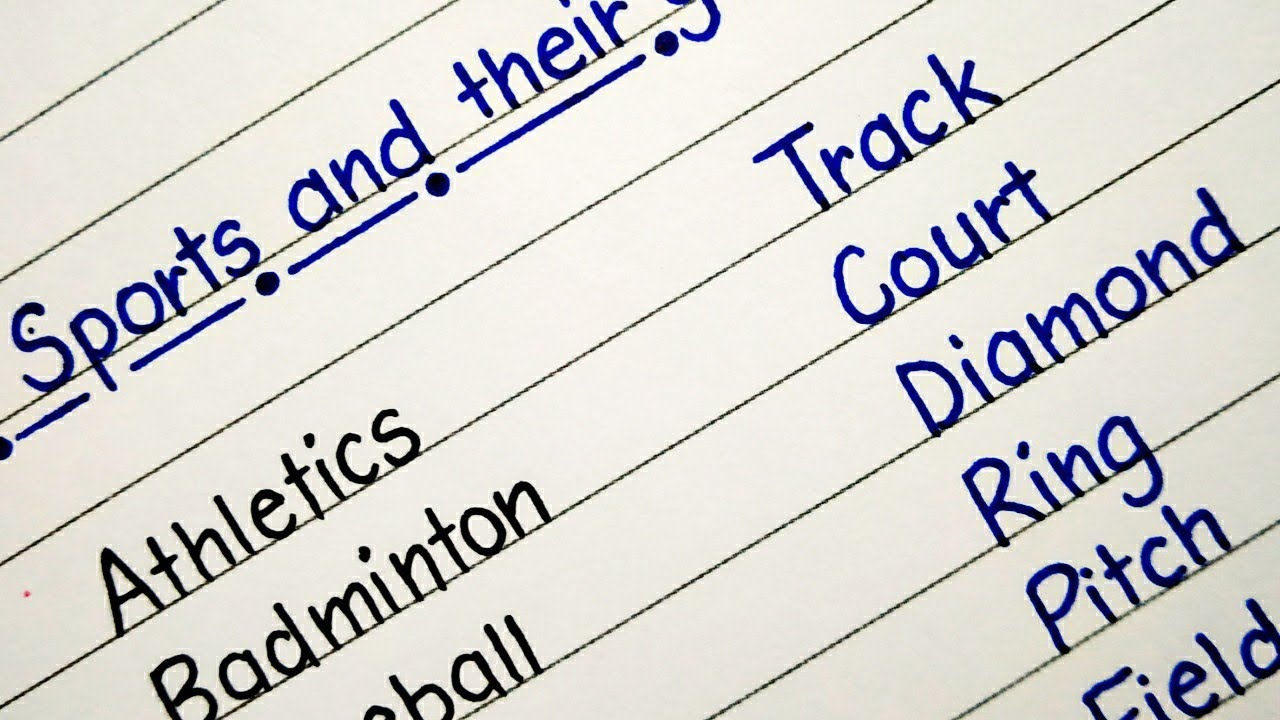 Sports and their
Athletics Track
Badminton Court
eball Diamond
Ring
Pitch
Field